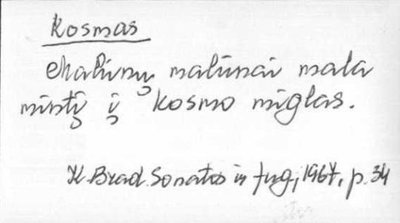 Kosmas
malūnai mala
mintį į kosmo miglas.
K. Brad. Sonatos ir fug., 1967, p. 34